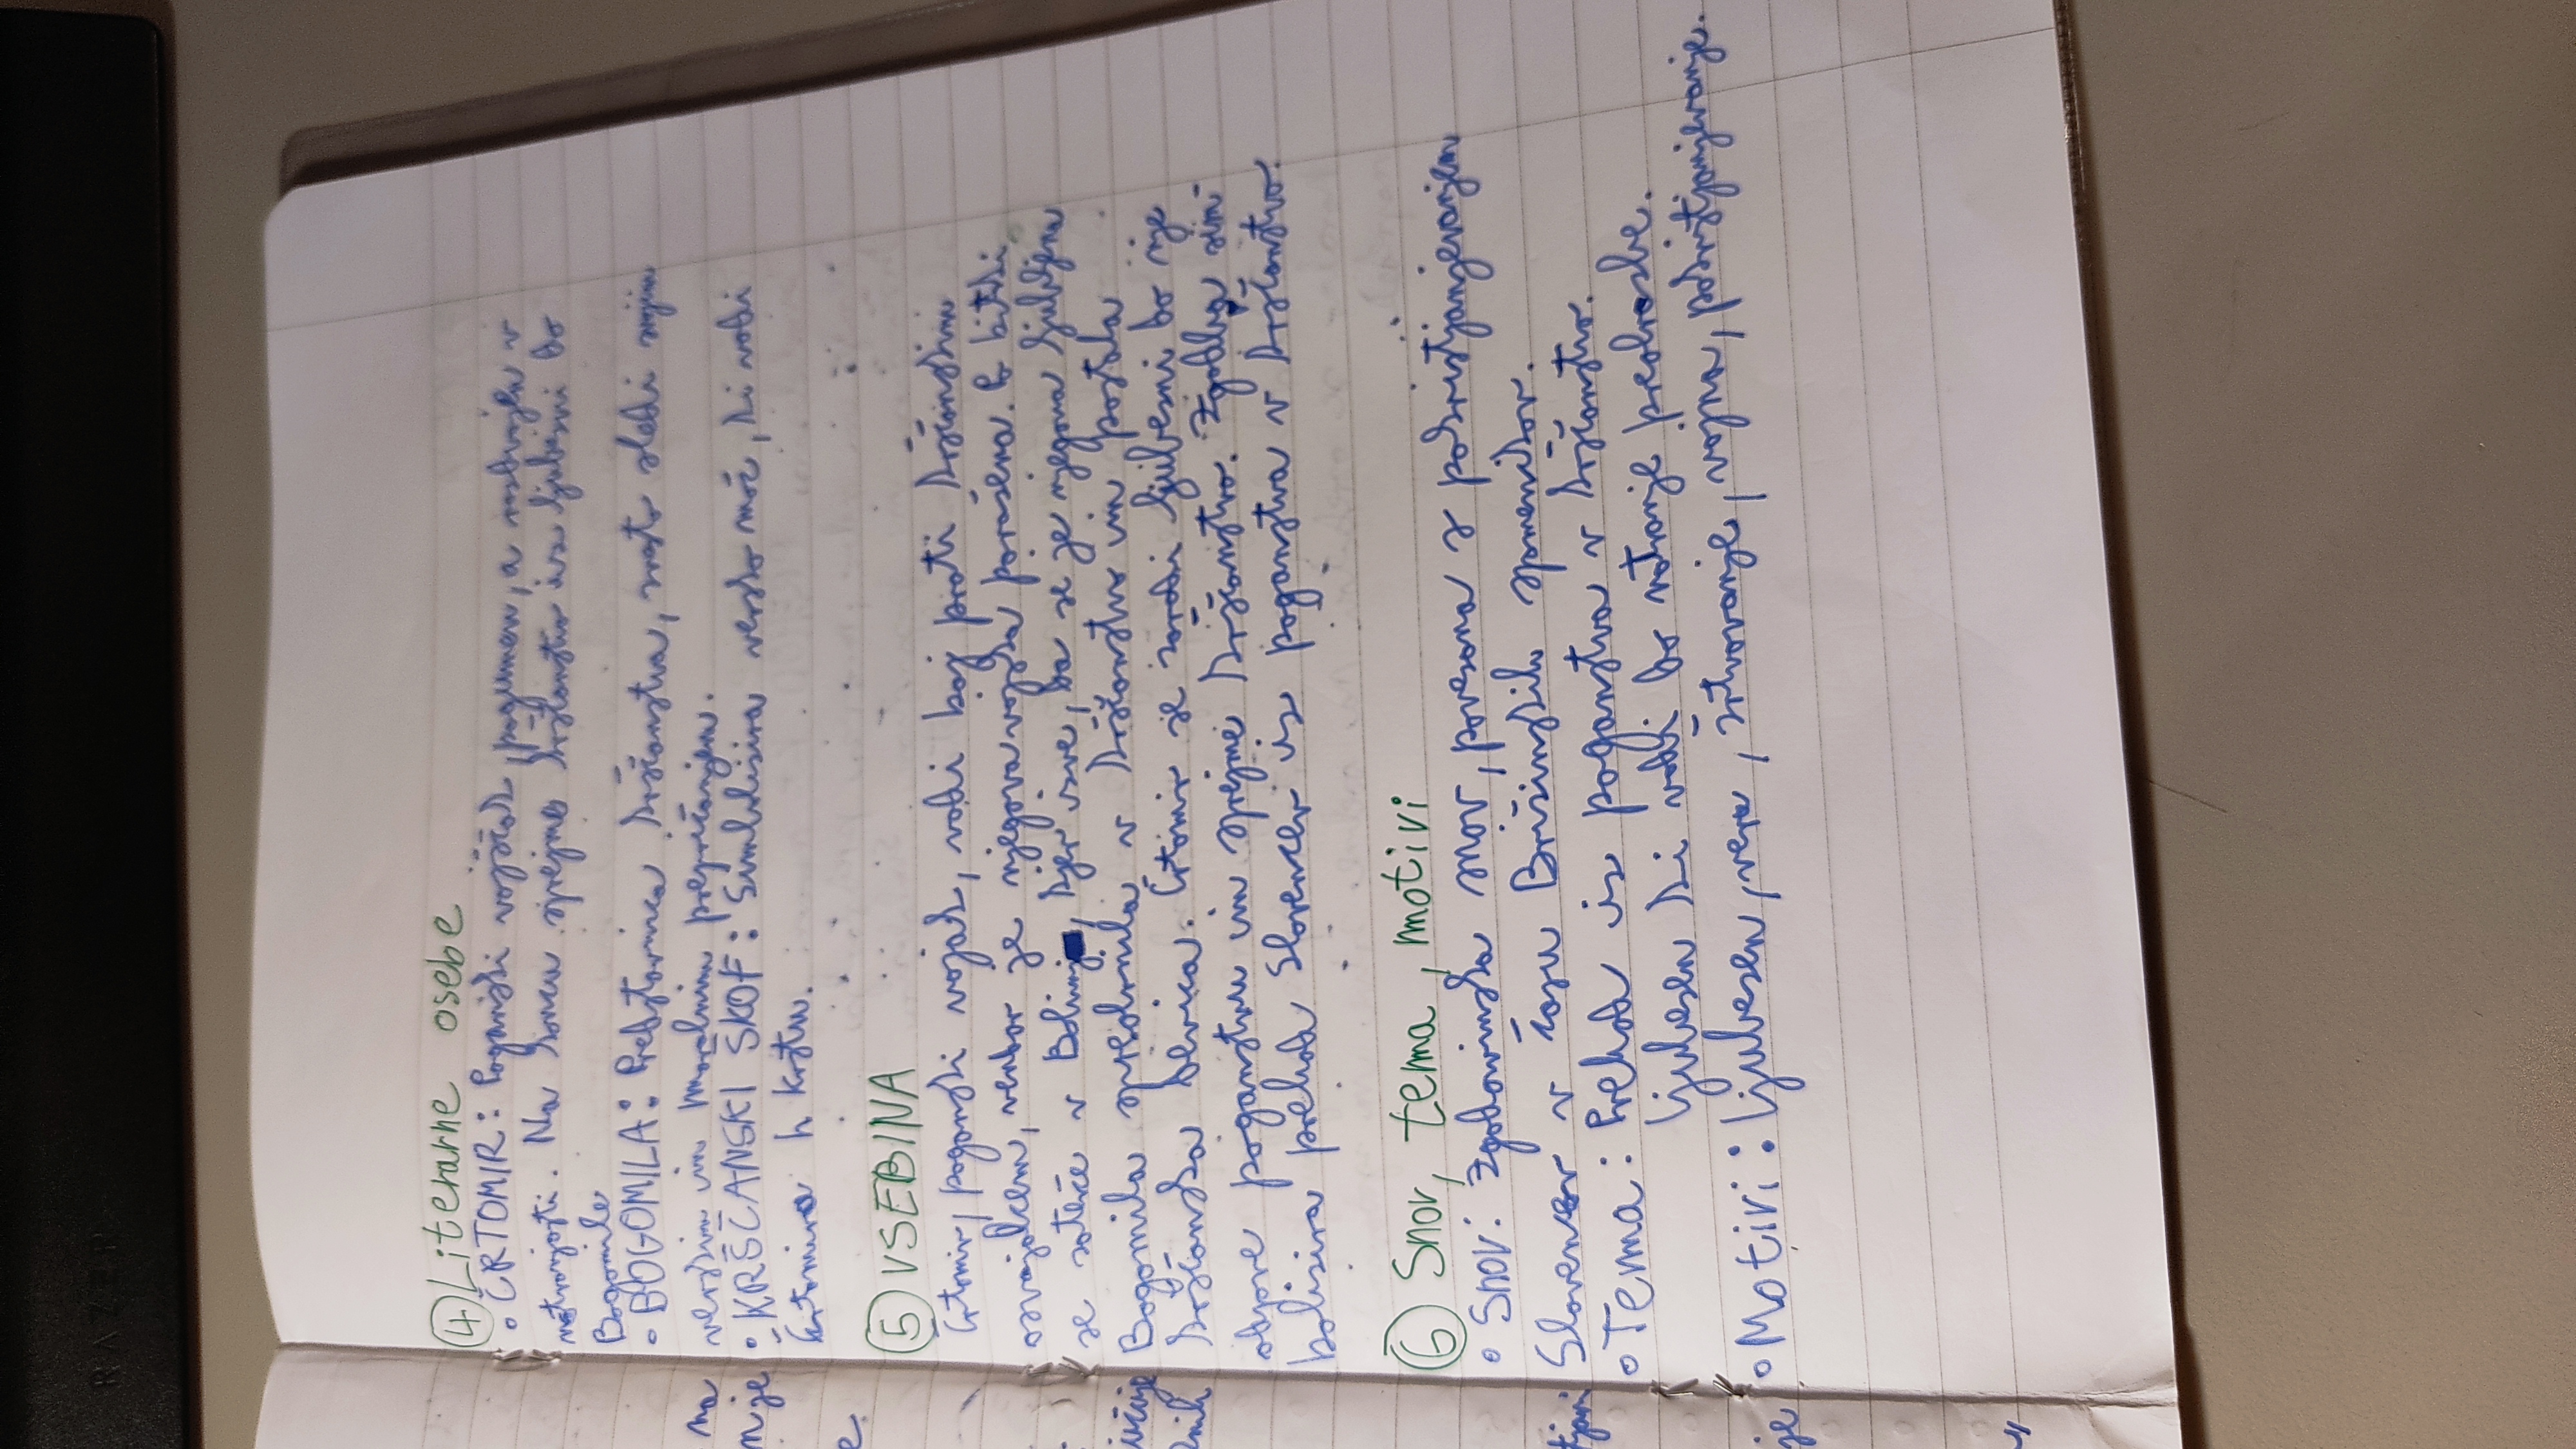 RAZER
④ Literarne osebe
• ČRTOMIR: Poganski vojščak, pogumen, a razdvojen v
notranjosti. Na koncu sprejme krščanstvo iz ljubezni do
Bogomile
• BOGOMILA: Predstavnica krščanstva, zvesto sledi svojim
verskim in moralnim prepričanjem.
• KRŠČANSKI ŠKOF: Simbolizira versko moč, ki vodi
Črtomira h krstu.
⑤ VSEBINA
Črtomir, poganski vojak, vodi boj proti krščanskim
osvajalcem, vendar je njegova vojska poražena. Po bitki
se zateče v Bohinj, kjer izve, da se je njegova ljubljena
Bogomila spreobrnila v krščanstvo in postala
krščanska devica. Črtomir se zaradi ljubezni do nje
odpove poganstvu in sprejme krščanstvo. Zgodba sim-
bolizira prehod Slovencev iz poganstva v krščanstvo.
⑥ Snov, tema, motivi
• Snov: Zgodovinska snov, povezana s pokristjanjevanjem
Slovencev v času Brižinskih spomenikov.
• Tema: Prehod iz poganstva v krščanstvo.
Ljubezen ki vodi do notranje preobrazbe.
• Motivi: Ljubezen, vera, žrtvovanje, vojna, pokristjanjevanje.
na
nje
e.
je